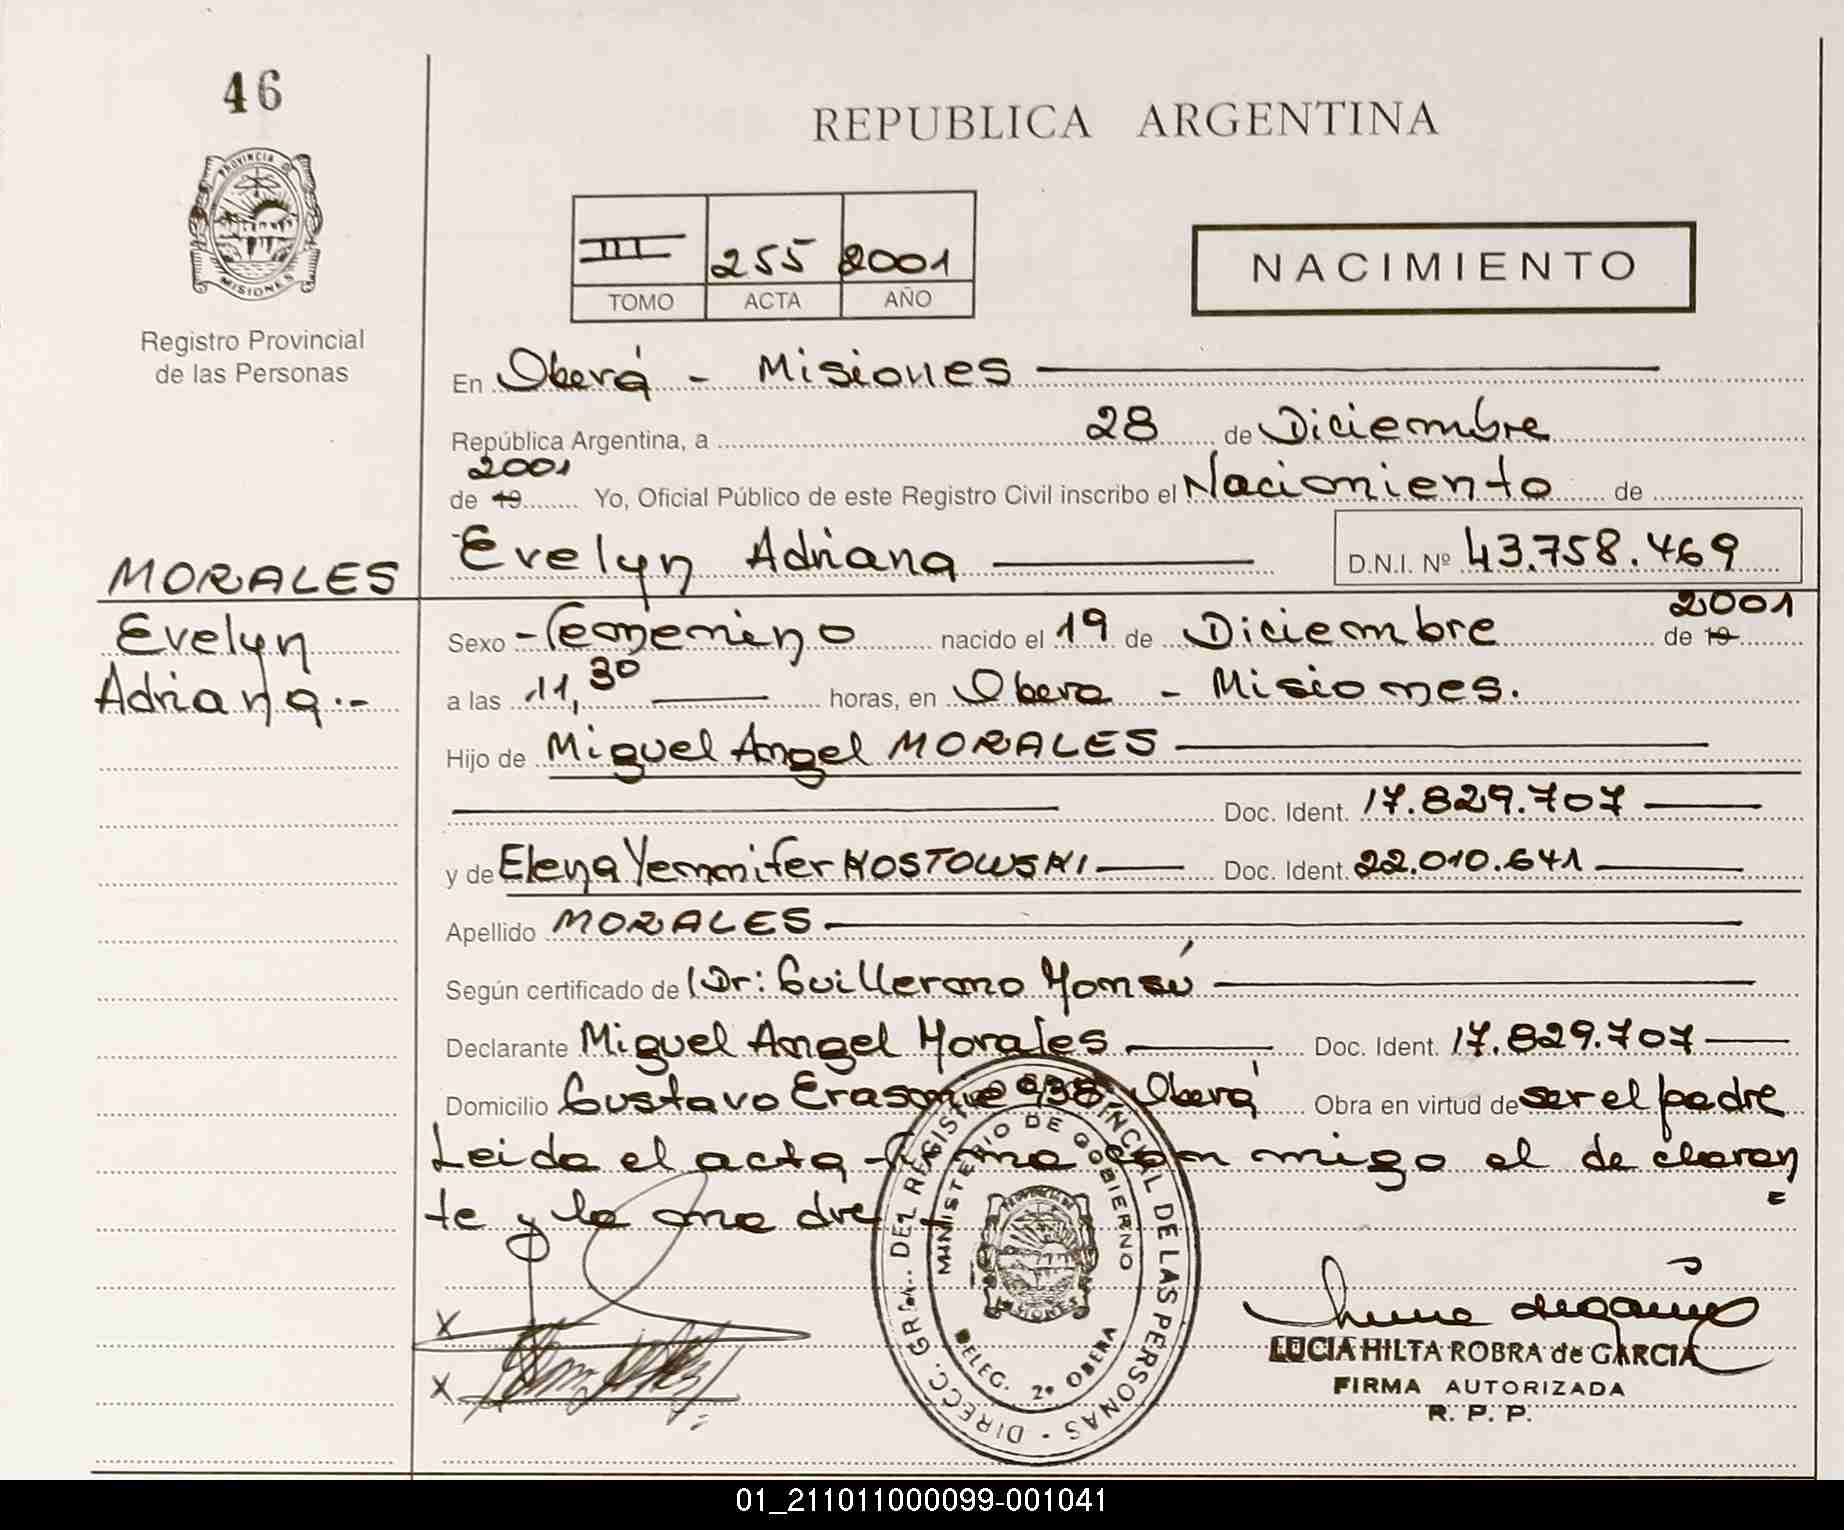 46
REPUBLICA ARGENTINA
PROVINCIA D
MISIONES
Registro Provincial
de las Personas
III 255 2001
TOMO ACTA AÑO
NACIMIENTO
En Oberá - Misiones
República Argentina, a 28 de Diciembre
2001
de 19 Yo, Oficial Público de este Registro Civil inscribo el Nacimiento de
Evelyn Adriana D.N.I. Nº 43.758.469
MORALES
Evelyn
Adriana.-
2001
Sexo - Femenino nacido el 19 de Diciembre de 19
a las 11,30 horas, en Obera - Misiones.
Hijo de Miguel Angel MORALES
Doc. Ident. 17.829.707
y de Elena Yennifer KOSTOWSKI Doc. Ident. 22.010.641
Apellido MORALES
Según certificado de Dr: Guillermo Monsú
Declarante Miguel Angel Morales Doc. Ident. 17.829.707
Domicilio Gustavo 938 Oberá Obra en virtud de ser el padre
Leida el acta firma con migo el de claran
te y la ma dre
DIRECC. GRAL. DEL REGISTRO PROVINCIAL DE LAS PERSONAS
MINISTERIO DE GOBIERNO
MISIONES
DELEG. 2º OBERA
X
X
LUCIA HILTA ROBRA de GARCIA
FIRMA AUTORIZADA
R. P. P.
01_211011000099-001041